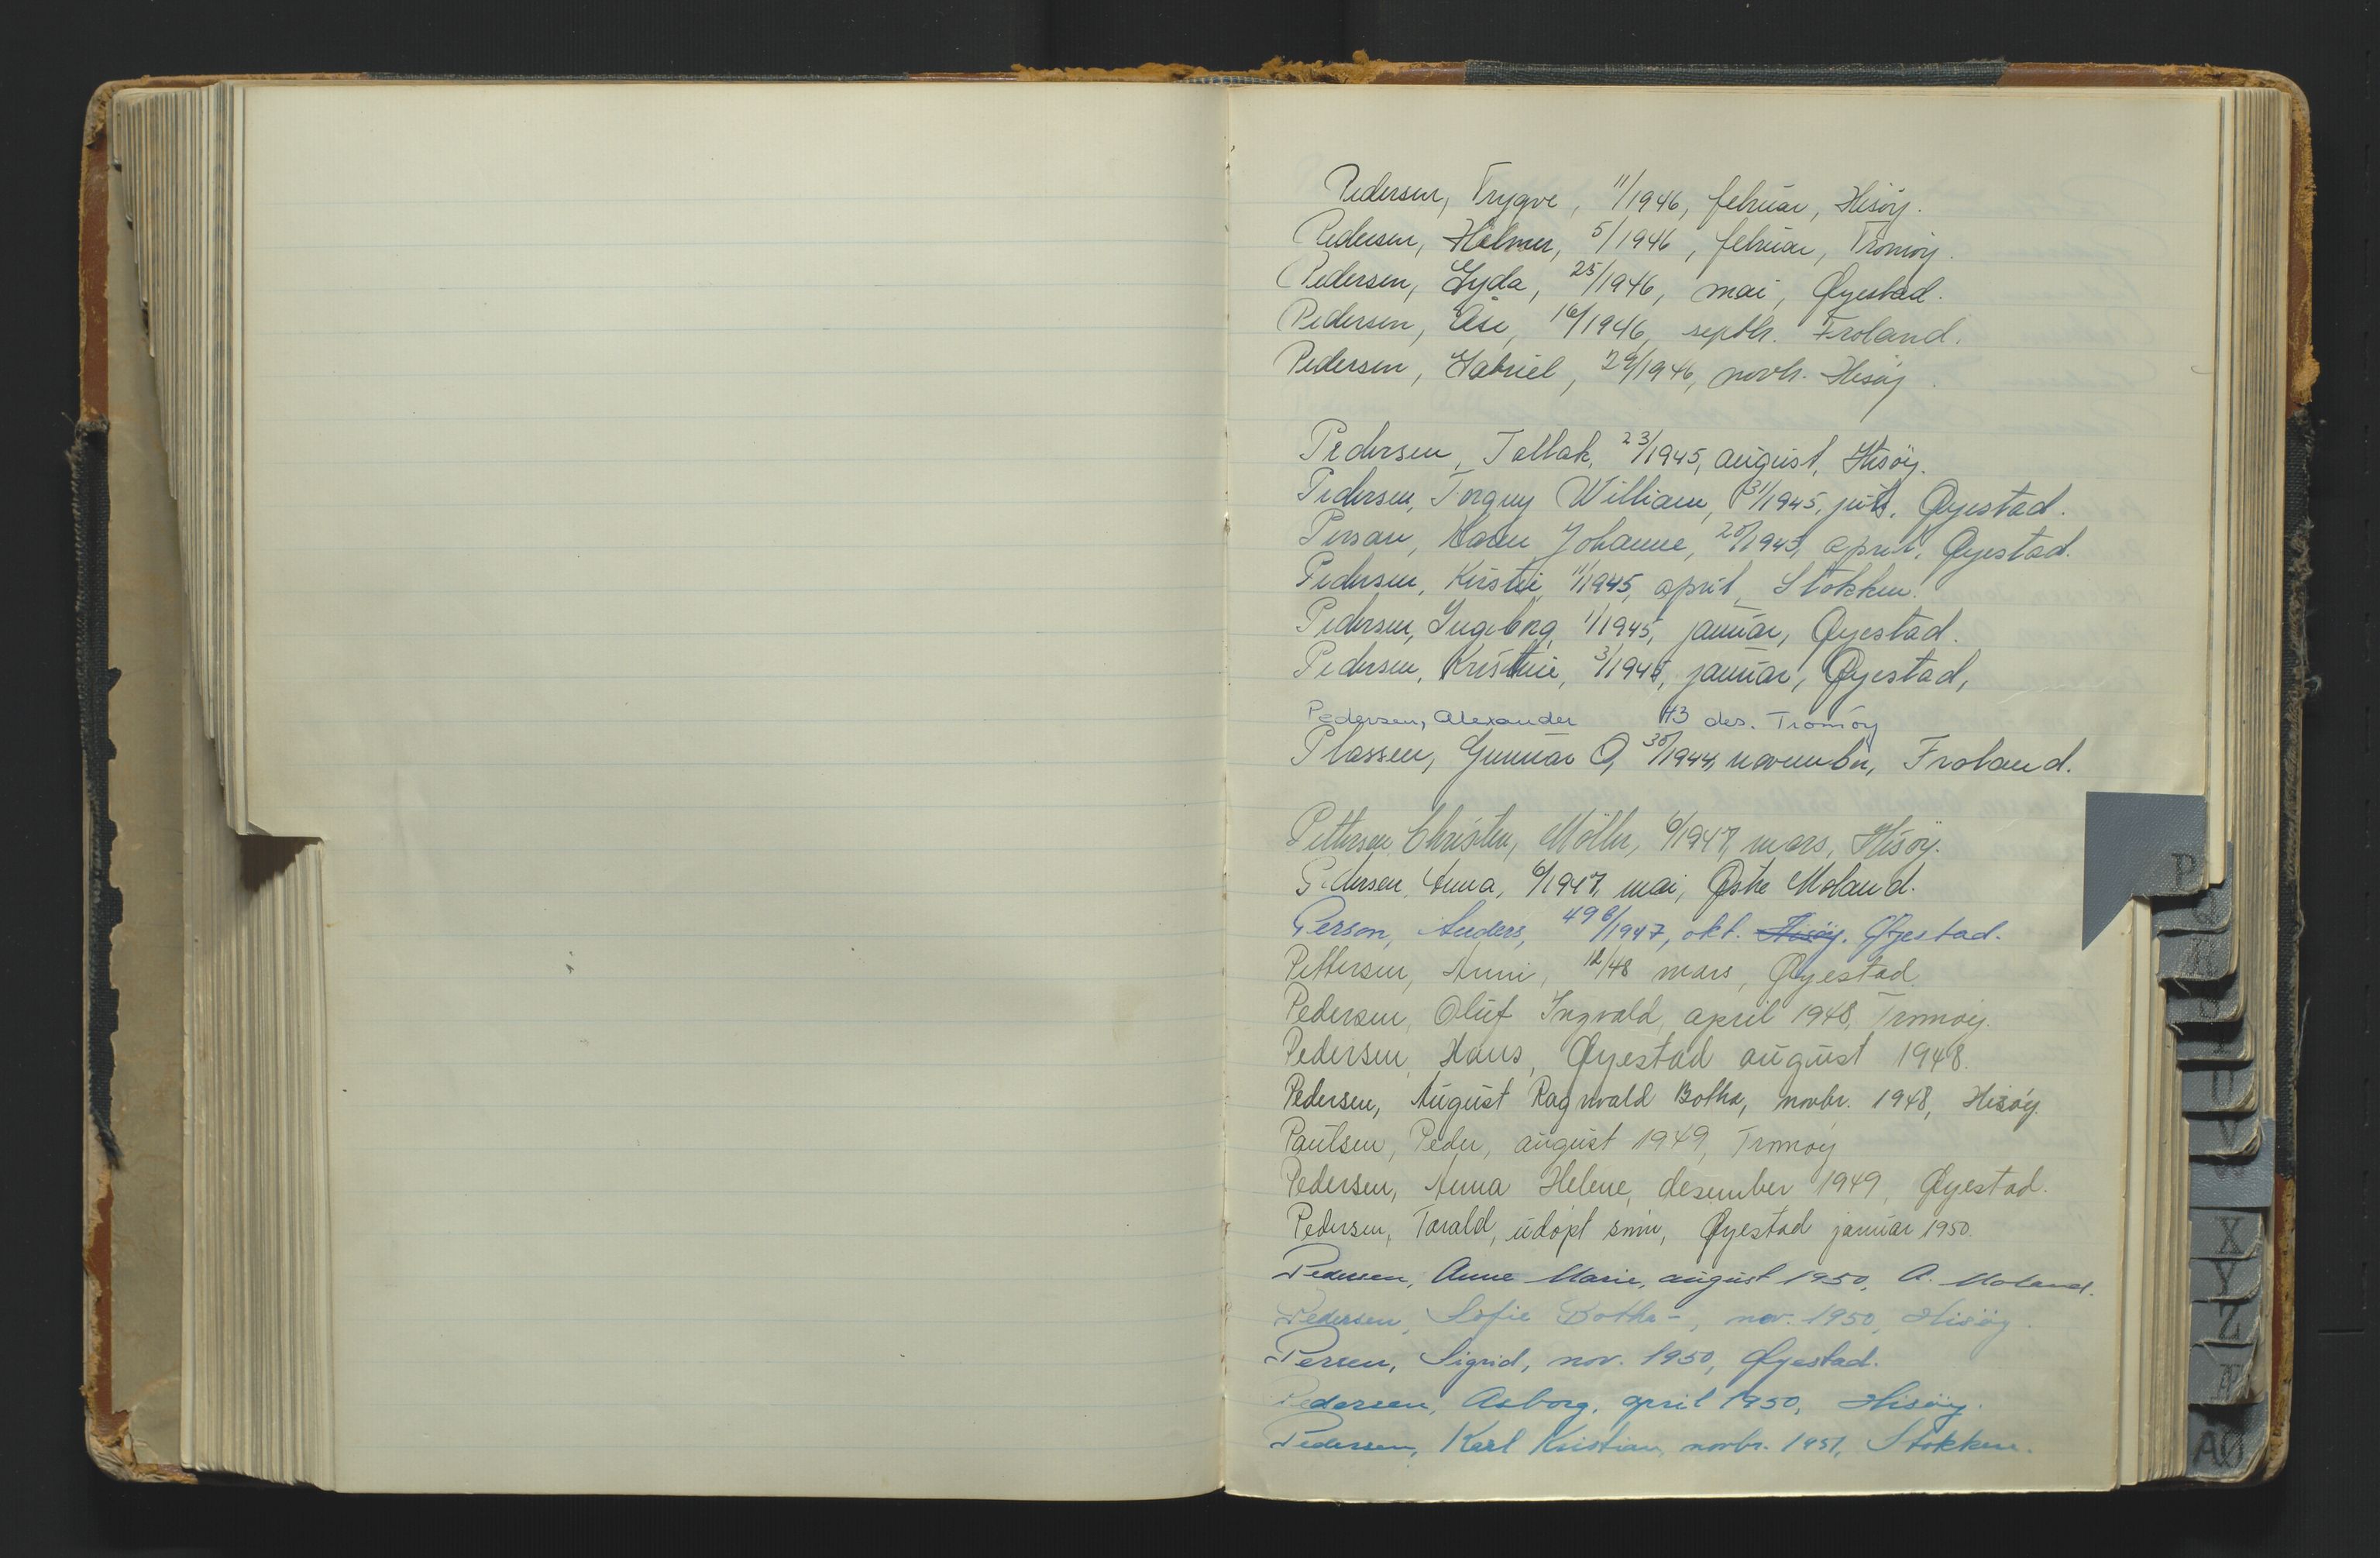 Pedersen, Trygve, 11/1946, februar, Hisøy.
Pedersen, Hilmer, 5/1946, februar, Tromøy.
Pedersen, Lyda, 25/1946, mai, Øyestad.
Pedersen, Åse, 16/1946, septbr. Froland.
Pedersen, Gabriel, 29/1946, novbr. Hisøy.
Pedersen, Tallak, 23/1945, august, Hisøy.
Pedersen, Torguy William, 31/1945, juli, Øyestad.
Persan, Karen Johanne, 20/1945, april, Øyestad.
Pedersen, Kirsti, 11/1945, april, Stokken.
Pedersen, Ingeborg, 1/1945, januar, Øyestad.
Pedersen, Kristine, 3/1945, januar, Øyestad,
Pedersen, Alexander 43 des. Tromøy
Plassen, Gunnar O, 30/1944, november, Froland.
Pettersen, Christen, Möller, 6/1947, mars, Hisøy.
Pedersen, Anna, 6/1947, mai, Østre Moland.
Person, Anders, 496/1947, okt. Hisøy. Øyestad.
Pettersen, Anni, 12/48 mars, Øyestad
Pedersen, Oluf Ingvald, april 1948, Tromøy.
Pedersen, Hans, Øyestad august 1948.
Pedersen, August Ragnvald Botha, novbr. 1948, Hisøy.
Paulsen, Peder, august 1949, Tromøy
Pedersen, Anna Helene, desember 1949, Øyestad.
Pedersen, Torald, udøpt sønn, Øyestad januar 1950
Pedersen, Anne Marie, august 1950, A. Moland.
Pedersen, Sofie Botha-, nov. 1950, Hisøy.
Persen, Sigrid, nov. 1950, Øyestad.
Pedersen, Asborg, april 1950, Hisøy.
Pedersen, Karl Kristian, novbr. 1951, Stokken.
P
R
U
V
X
Y
Z
Æ
AØ